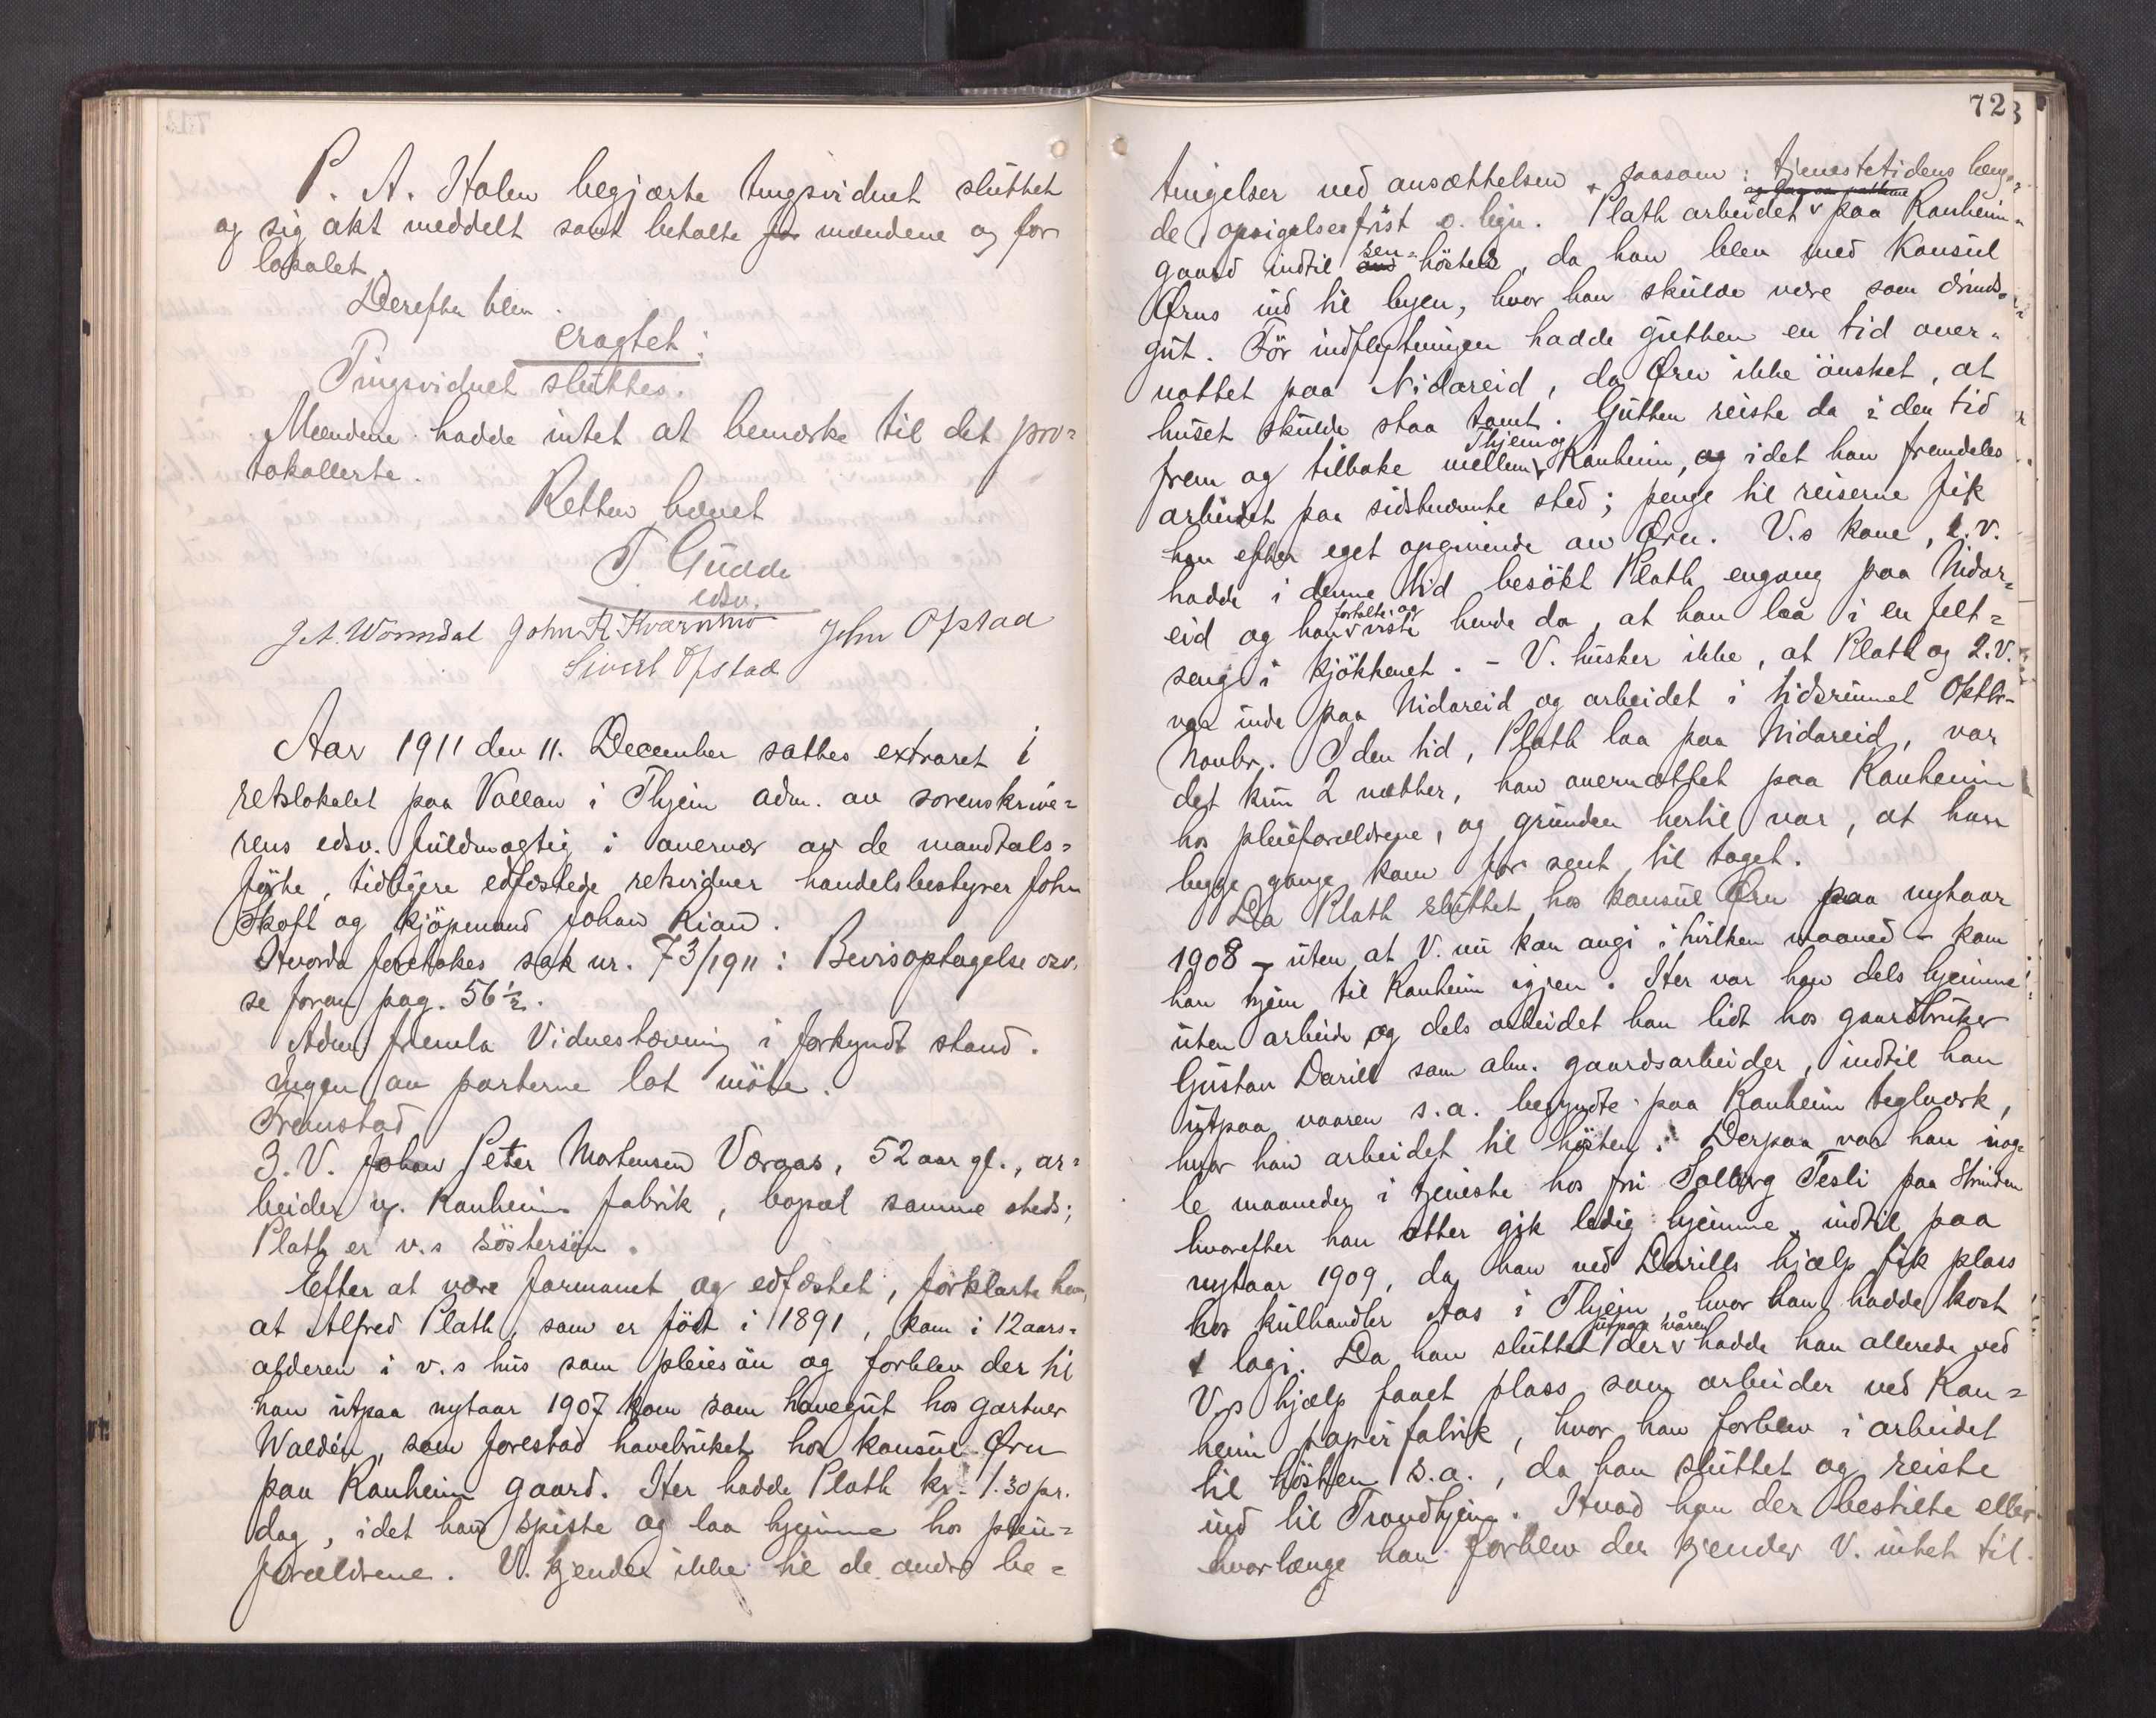 P. A. Holen begjærte tingsvidnet sluttet
og sig akt meddelt samt betalte for mændene og for
lokalet.
Derefter blev
eragtet:
Tingsvidnet sluttes.
Mændene hadde intet at bemerke til det pro=
tokollerte.
Retten hævet
T. Gudde
edsv.
J. A. Wormdal John A. Kvarnmo John Opstad
Sivert Opstad
Aar 1911 den 11. December sattes extraret i
retslokalet paa Vollan i Thjem adm. av sorenskrive=
rens edsv. fuldmægtig i overvær av de mandtals=
førte, tidligere edfæstede retsvidner handelsbestyrer John
Skoft og kjöpmand Johan Rian.
Hvorda foretokes sak nr. 73/1911: Bevisoptagelse osv.
se foran pag. 56½.
Adm. fremla Vidnestævning i forkyndt stand.
Ingen av parterne lot møte.
Fremstod
3. V. Johan Peter Mortensen Værgas, 52 aar gl., ar=
beider v. Ranheim fabrik, bopæl samme steds;
Plath er v.s söstersön.
Efter at være formanet og edfæstet, forklarte han,
at Alfred Plath, som er födt i 1891, kom i 12 aars=
alderen i v.s hus som pleiesön og forblev der til
han utpaa nytaar 1907 kom som havegut hos gartner
Waldén, som forestod havebruket hos konsul Øren
paa Ranheim gaard. Her hadde Plath kr. 1.30 pr.
dag, idet han spiste og laa hjemme hos pleie=
forældrene. V. kjender ikke til de andre be=
72
tingelser ved ansættelsen, saasom: tjenestetidens læng=
de, opsigelsesfrist o. lign. Plath arbeidet paa Ranheim=
gaard indtil sen=høstes, da han blev med Konsul
Ørens ind til byen, hvor han skulde være som ærinds=
gut. För indflytningen hadde gutten en tid over=
nattet paa Nidareid, da Øren ikke önsket, at
huset skulde staa tomt. Gutten reiste da i den tid
frem og tilbake mellem Thjem og Ranheim, idet han fremdeles
arbeidet paa sidstnævnte sted; penge til reiserne fik
han efter eget opgivende av Øren. V.s kone, 2. V.
hadde i denne tid besökt Plath engang paa Nidar=
eid og han fortalte og viste hende da, at han laa i en felt=
seng i kjökkenet. - V. husker ikke, at Plath og 2. V.
var inde paa Nidareid og arbeidet i tidsrummet Oktbr-
Novbr. I den tid, Plath laa paa Nidareid, var
det kun 2 nætter, han overnattet paa Ranheim
hos pleieforældrene, og grunden hertil var, at han
begge gange kom for sent til toget.
Da Plath sluttet hos konsul Øren paa nytaar
1908 - uten at V. nu kan angi i hvilken maaned - kom
han hjem til Ranheim igjen. Her var han dels hjemme
uten arbeide og dels arbeidet han lidt hos gaardbruker
Gustav Darill som alm. gaardsarbeider, indtil han
utpaa vaaren s.a. begyndte paa Ranheim teglværk,
hvor han arbeidet til høsten. Derpaa var han nog=
le maaneder i tjeneste hos fru Solberg Tesli paa Strinden
hvorefter han atter gik ledig hjemme, indtil paa
nytaar 1909, da han ved Darills hjælp fik plass
hos kulhandler Aas i Thjem, hvor han hadde kost
& logi. Da han sluttet der utpaa våren hadde han allerede ved
V.s hjælp faaet plass som arbeider ved Ran=
heim papirfabrik, hvor han forblev i arbeidet
til høsten s.a., da han sluttet og reiste
ind til Trondhjem. Hvad han der bestilte eller
hvorlænge han forblev der kjender V. intet til.